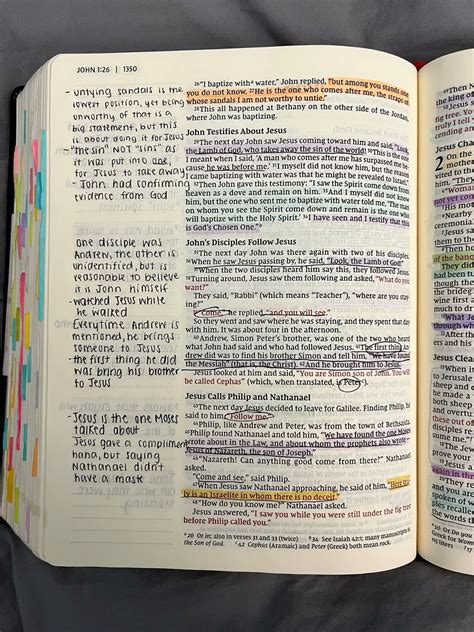 JOHN 1:26 | 1350
- untying sandals is the
lowest position, yet being
unworthy of that is a
big statement, but this
is about doing it for Jesus
- "the sin" NOT "sins" as
it was put into one,
for Jesus to take away
- John had confirming
evidence from God
one disciple was
Andrew, the other is
unidentified, but is
reasonable to believe
it is John himself
- watched Jesus while
he walked
Everytime Andrew is
mentioned, he brings
someone to Jesus
- the first thing he did
was bring his brother
to Jesus
- Jesus is the one Moses
talked about
Jesus gave a compliment
haha, but saying
Nathanael didn't
have a mask
26 "I baptize with water," John replied, "but among you stands one
you do not know. 27 He is the one who comes after me, the straps of
whose sandals I am not worthy to untie."
28 This all happened at Bethany on the other side of the Jordan,
where John was baptizing.
John Testifies About Jesus
29 The next day John saw Jesus coming toward him and said, "Look,
the Lamb of God, who takes away the sin of the world! 30 This is the one
I meant when I said, 'A man who comes after me has surpassed me be-
cause he was before me.' 31 I myself did not know him, but the reason
I came baptizing with water was that he might be revealed to Israel."
32 Then John gave this testimony: "I saw the Spirit come down from
heaven as a dove and remain on him. 33 And I myself did not know
him, but the one who sent me to baptize with water told me, 'The man
on whom you see the Spirit come down and remain is the one who
will baptize with the Holy Spirit.' 34 I have seen and I testify that this
is God's Chosen One."
John's Disciples Follow Jesus
35 The next day John was there again with two of his disciples.
36 When he saw Jesus passing by, he said, "Look, the Lamb of God!"
37 When the two disciples heard him say this, they followed Jesus.
38 Turning around, Jesus saw them following and asked, "What do
you want?"
They said, "Rabbi" (which means "Teacher"), "where are you stay-
ing?"
39 "Come," he replied, "and you will see."
So they went and saw where he was staying, and they spent that day
with him. It was about four in the afternoon.
40 Andrew, Simon Peter's brother, was one of the two who heard
what John had said and who had followed Jesus. 41 The first thing
Andrew did was to find his brother Simon and tell him, "We have found the
Messiah" (that is, the Christ). 42 And he brought him to Jesus.
Jesus looked at him and said, "You are Simon son of John. You will
be called Cephas" (which, when translated, is Peter).
Jesus Calls Philip and Nathanael
43 The next day Jesus decided to leave for Galilee. Finding Philip, he
said to him, "Follow me."
44 Philip, like Andrew and Peter, was from the town of Bethsaida.
45 Philip found Nathanael and told him, "We have found the one Moses
wrote about in the Law, and about whom the prophets also wrote—
Jesus of Nazareth, the son of Joseph."
46 "Nazareth! Can anything good come from there?" Nathanael
asked.
"Come and see," said Philip.
47 When Jesus saw Nathanael approaching, he said of him, "Here tru-
ly is an Israelite in whom there is no deceit."
48 "How do you know me?" Nathanael asked.
Jesus answered, "I saw you while you were still under the fig tree
before Philip called you."
26 Or in; also in verses 31 and 33 (twice) 34 See Isaiah 42:1; many manuscripts
the Son of God. 42 Cephas (Aramaic) and Peter (Greek) both mean rock.
Jesus Cha